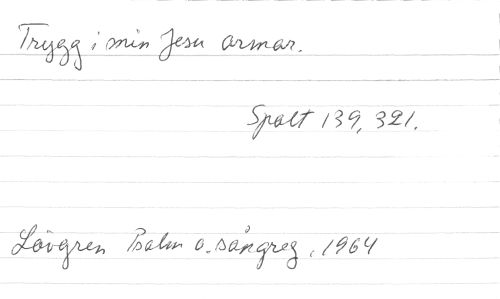 Trygg i min Jesu armar.
Spalt 139, 321.
Lövgren Psalm o. sångreg, 1964